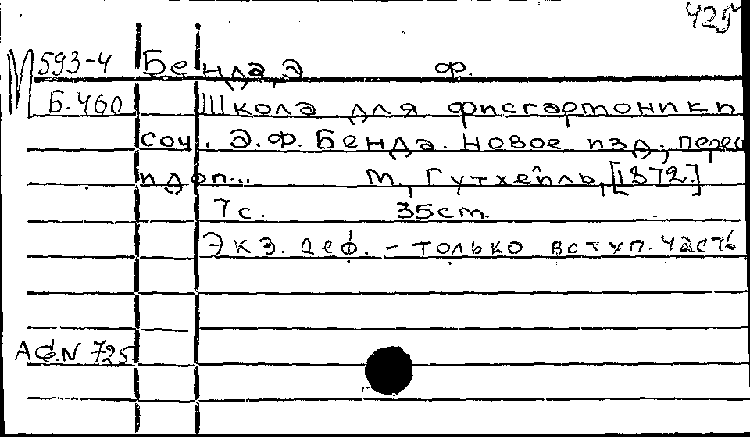 425
М 593-4 Бенда, Э Ф.
Б-460 Школа для фисгармоники
соч. Э.Ф. Бенда. Новое изд., перес
и доп... М., Гутхейль, [1872.]
7 с. 35 cm.
Экз. деф. - только вступ. часть
АФ.N 725